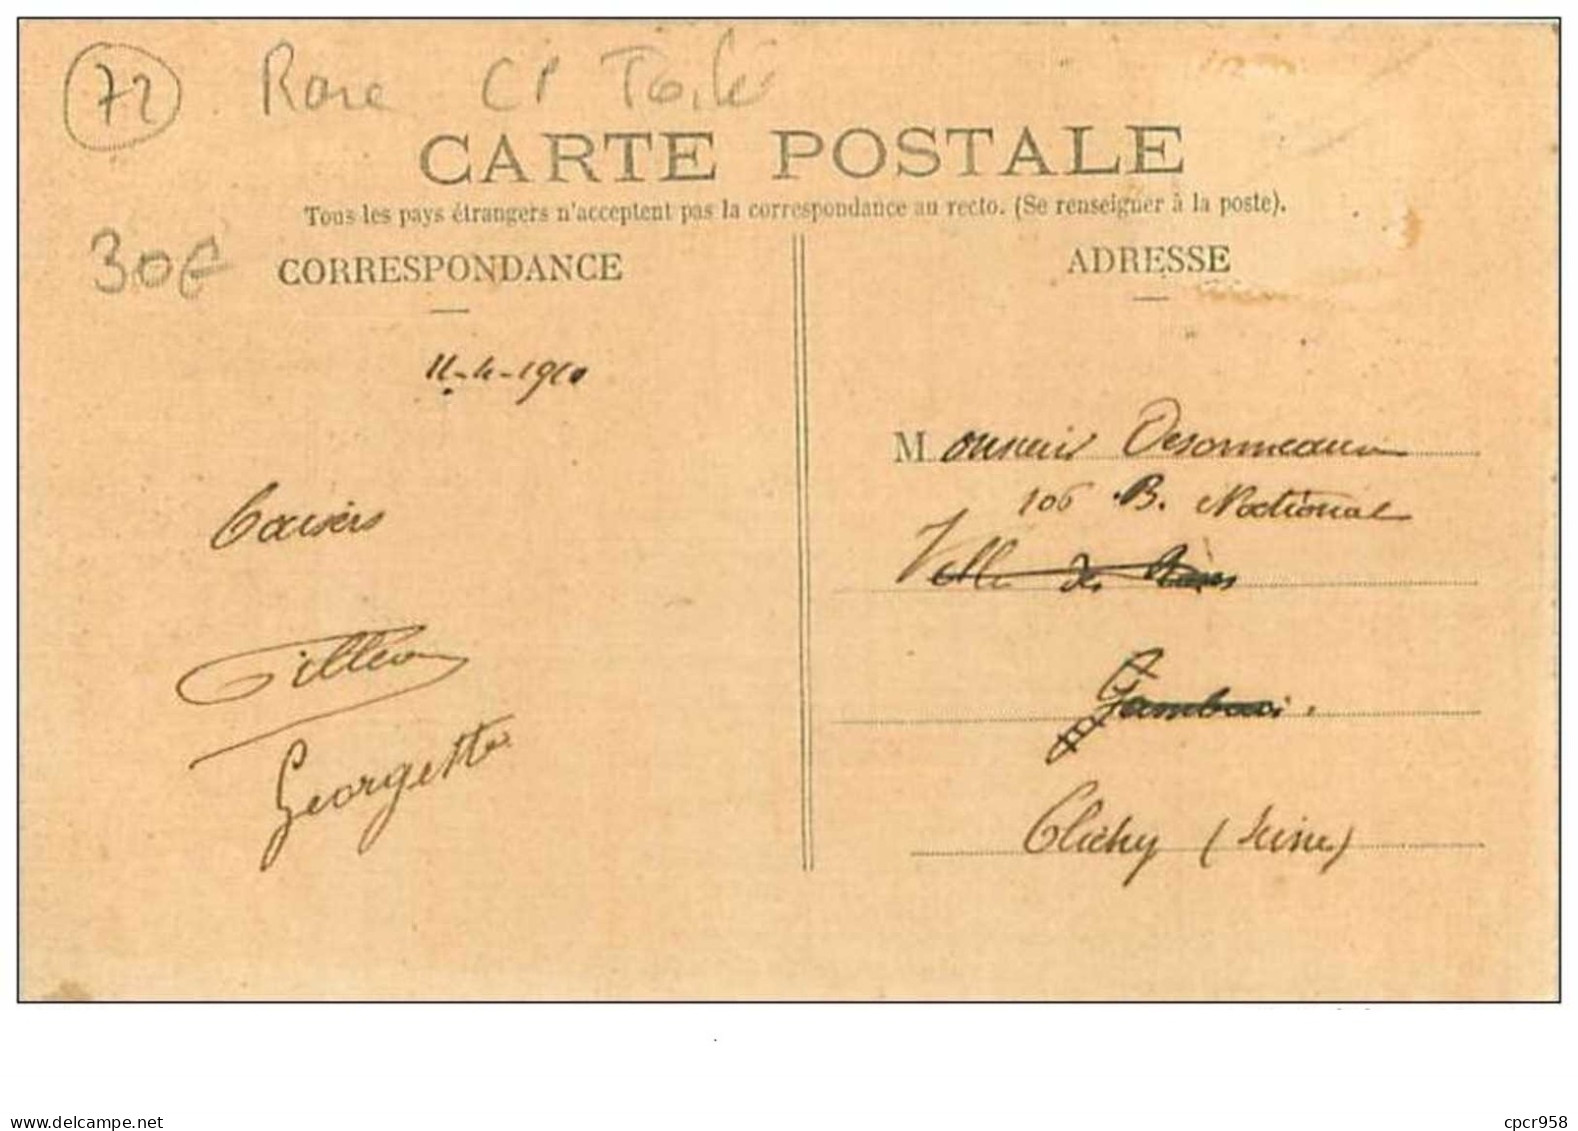 72 Rare CP Toilé
CARTE POSTALE
Tous les pays étrangers n'acceptent pas la correspondance au recto. (Se renseigner à la poste).
30€
CORRESPONDANCE
ADRESSE
11-4-1910
Monsieur Desormeaux
106 B. National
Ville de
Baisers
Georgette
Clichy (Seine)
www.delcampe.net
cpcr958